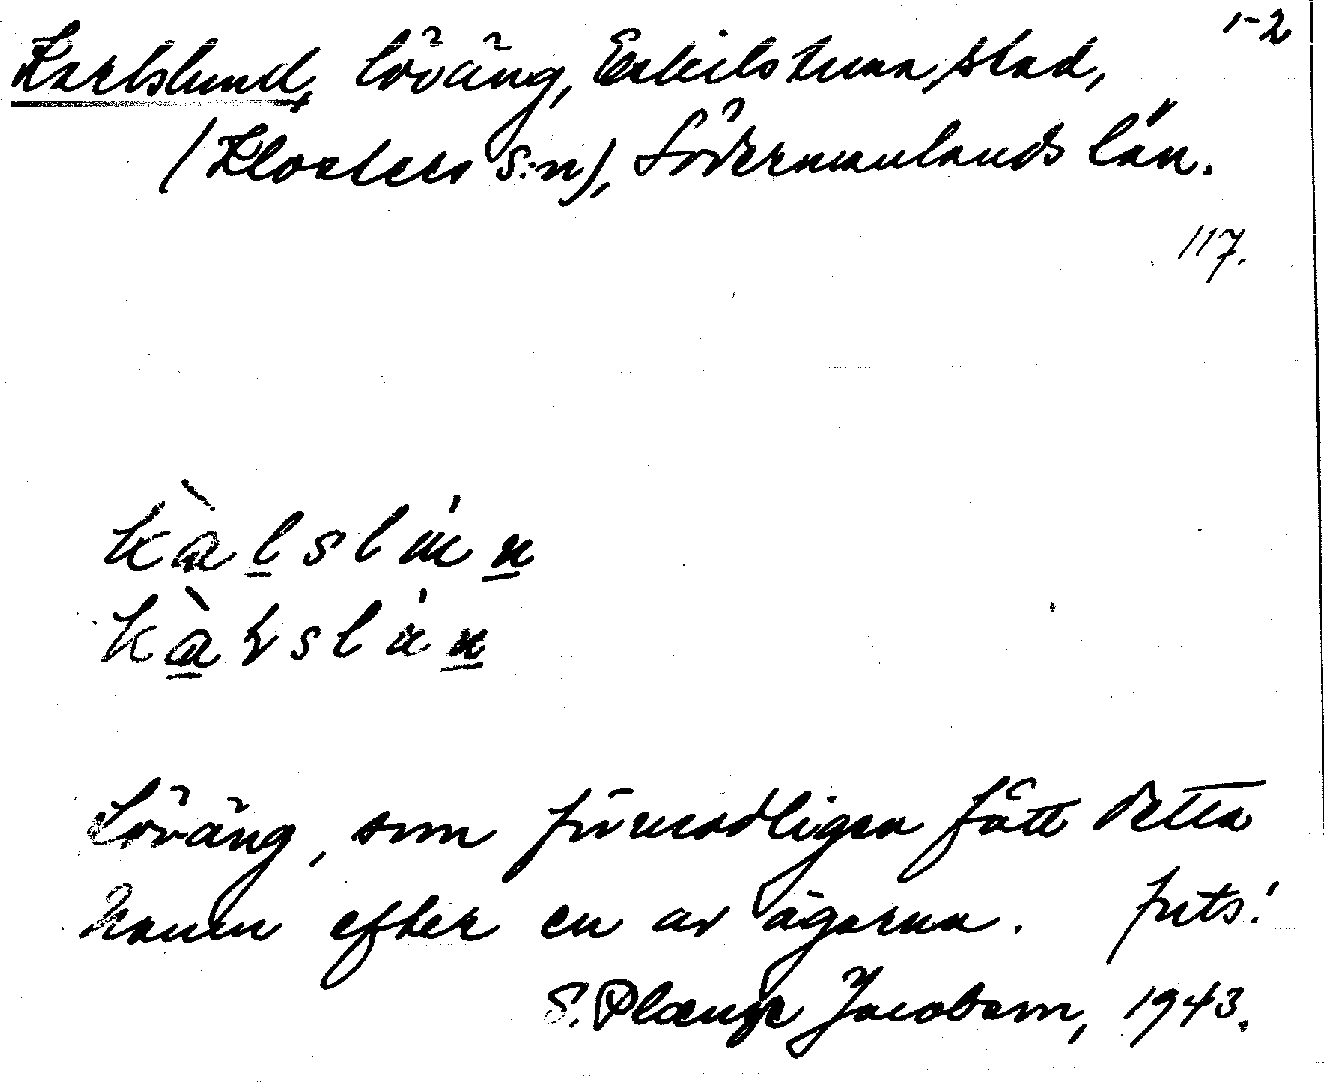 1-2
Karlslund, löväng, Eskilstuna stad,
(Klosters s:n), Södermanlands län.
117.
kàlslún
kàrslún
Löväng, som förmodligen fått detta
namn efter en av ägarna. forts!
S. Plænge Jacobson, 1943.